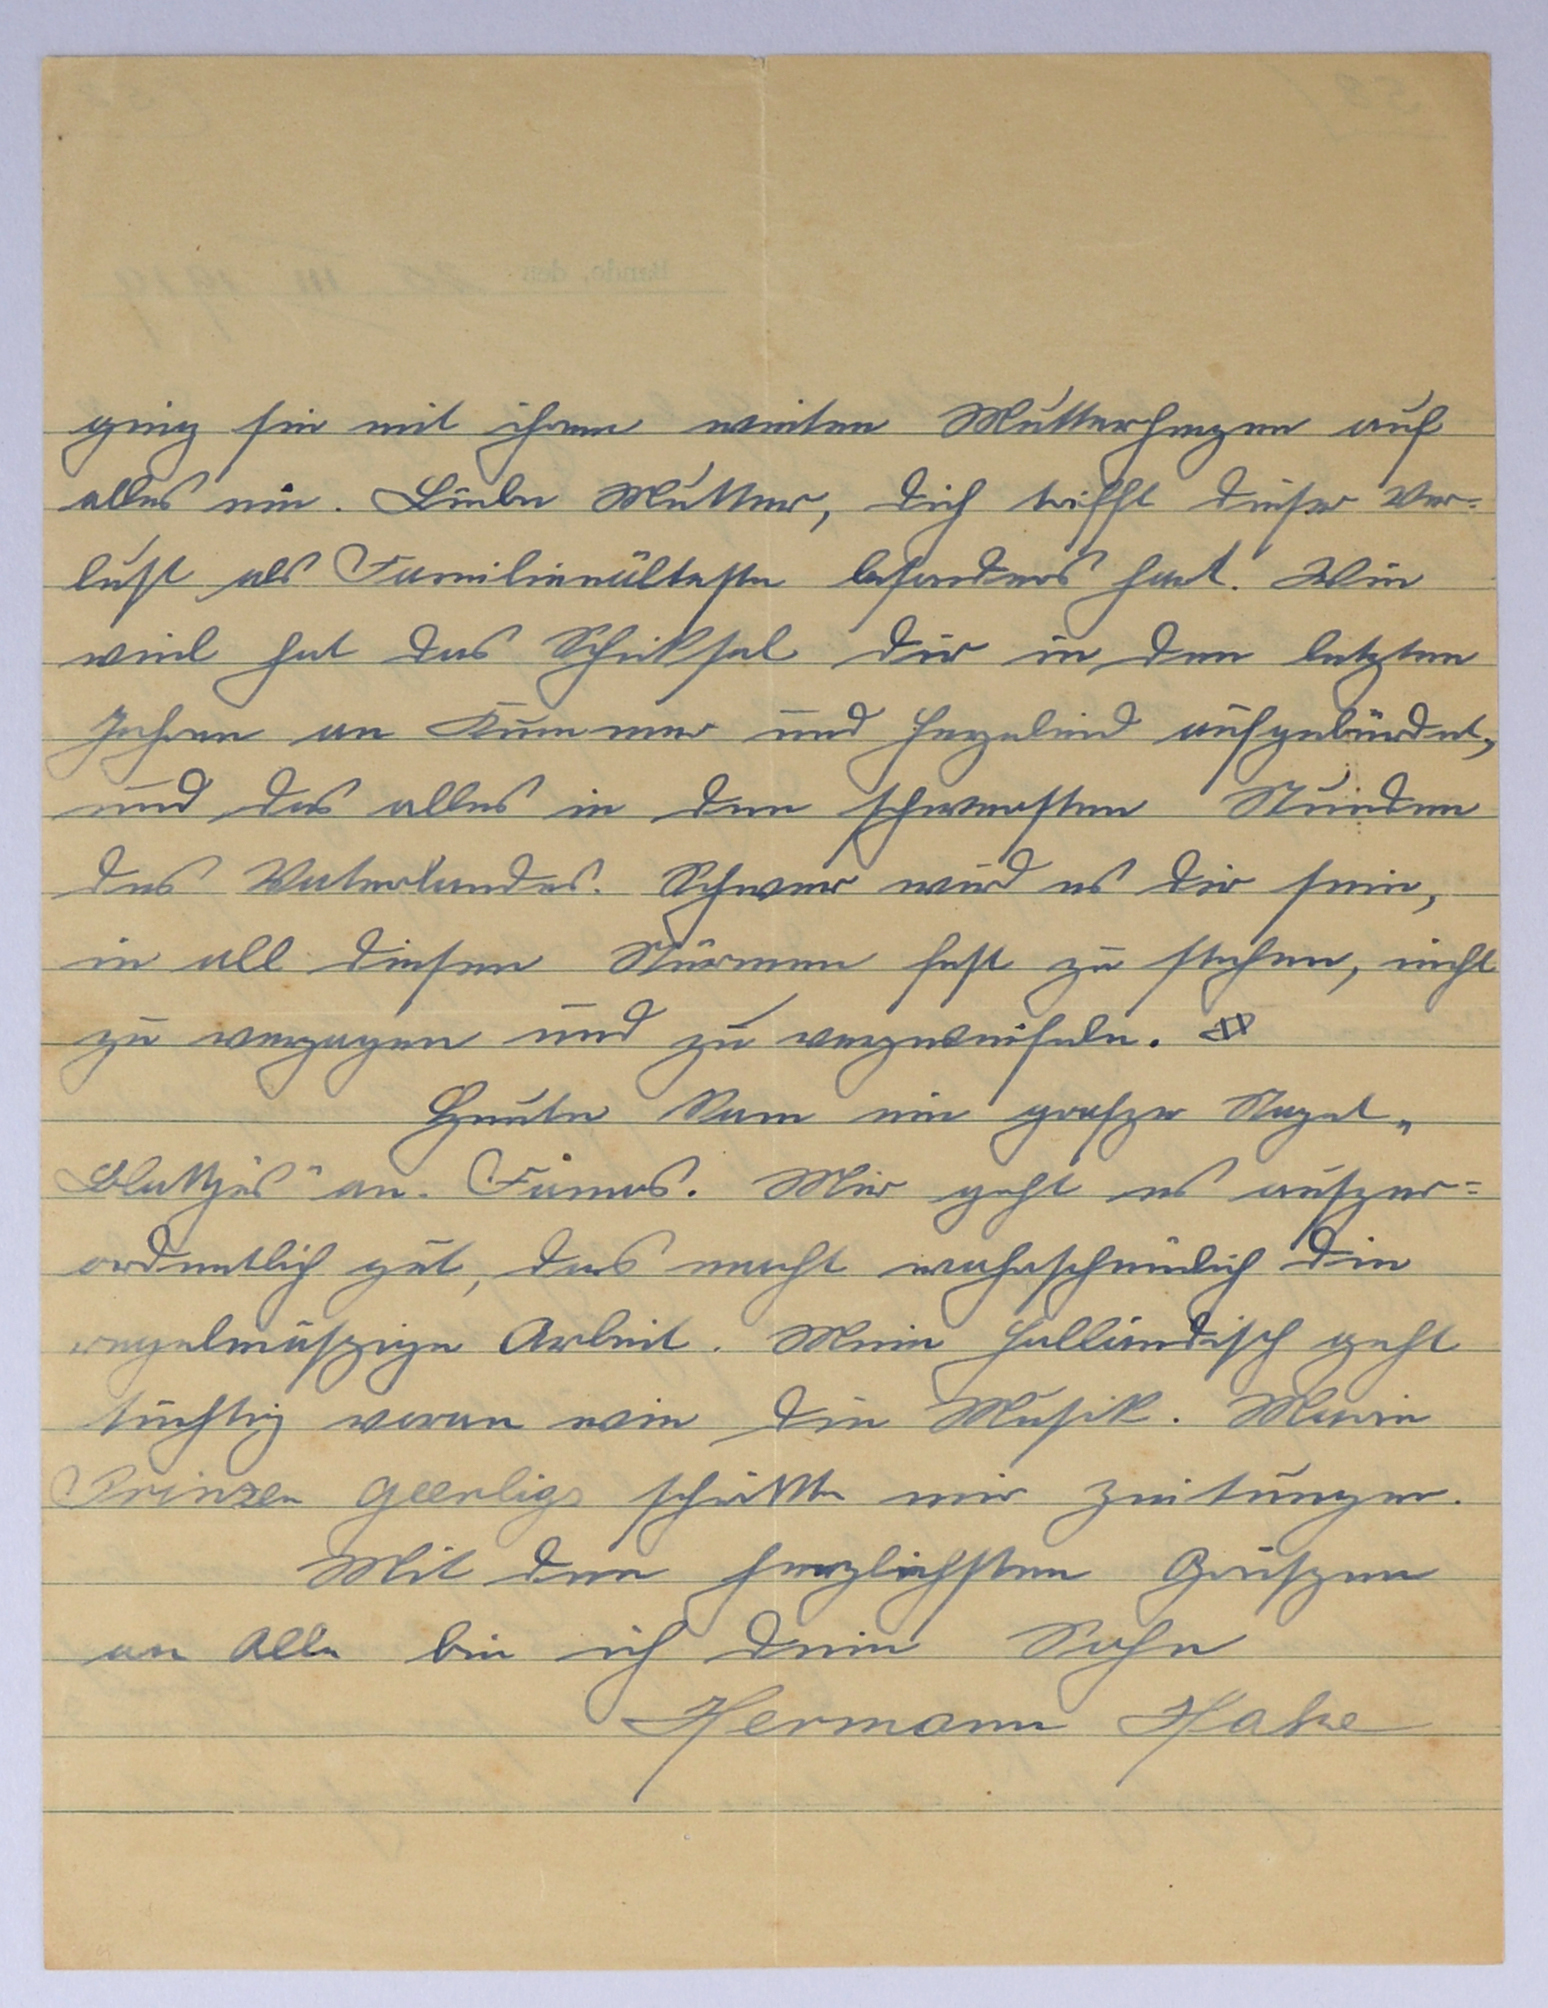 ging sie mit ihrem weiten Mutterherzen auf
alles ein. Liebe Mutter, dich trifft dieser Ver=
lust als Familienälteste besonders hart. Wie
viel hat das Schiksal dir in den letzten
Jahren an Kummer und Herzeleid aufgebürdet,
und das alles in den schwersten Stunden
des Vaterlandes. Schwer wird es dir sein,
in all diesen Stürmen fest zu stehen, nicht
zu verzagen und zu verzweifeln.
Heute kam ein groszer Stapel „
Blattjes" an. Famos. Mir geht es auszer=
ordentlich gut, das macht wahrscheinlich die
regelmäszige Arbeit. Mein Holländisch geht
tüchtig voran wie die Musik. Marie
Prinzen Geerligs schikte mir Zeitungen.
Mit den herzlichsten Grüszen
an Alle bin ich dein Sohn
Hermann Hake